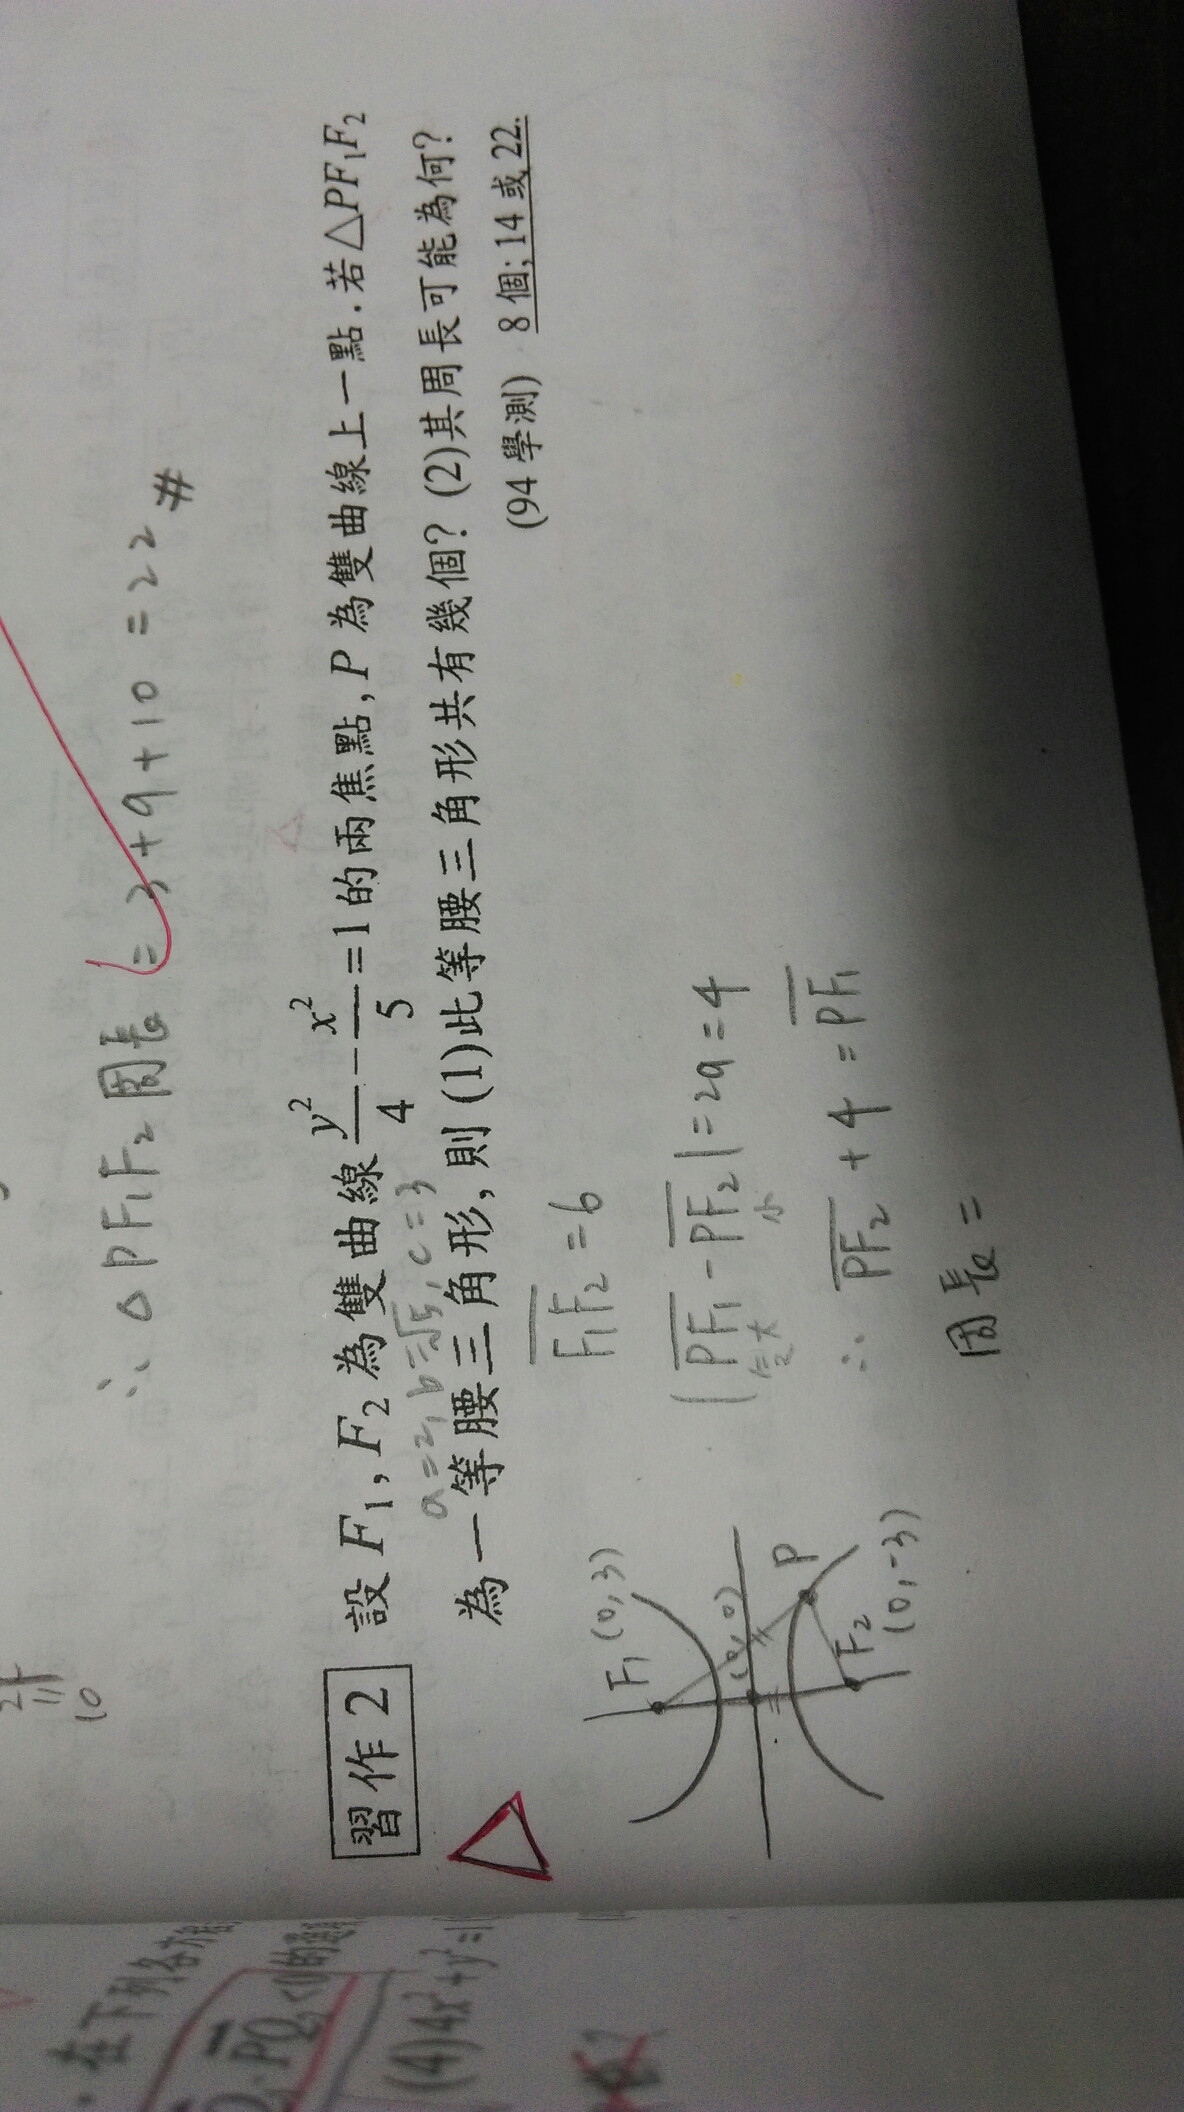 ∴ △PF₁F₂周長 = 3+9+10 = 22 #
習作2 設 F₁, F₂ 為雙曲線 y²/4 − x²/5 = 1 的兩焦點, P 為雙曲線上一點. 若 △PF₁F₂
a=2, b=√5, c=3
為一等腰三角形, 則 (1)此等腰三角形共有幾個? (2)其周長可能為何?
(94 學測) 8 個; 14 或 22.
F₁F₂ = 6
|PF₁ − PF₂| = 2a = 4
大 小
∴ PF₂ + 4 = PF₁
周長 =
F₁(0,3)
(0,0)
P
F₂
(0,-3)
2
11
10
. 在下列各方程
PQ₂<0的
(4)4x²+y²=1